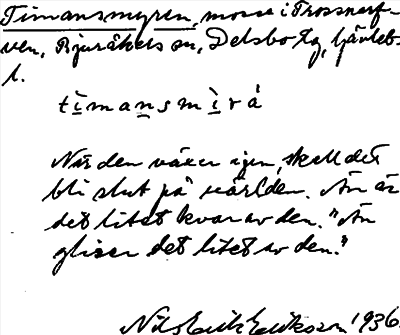 Timansmyren, mosse i Trossnarf-
ven, Bjuråkers sn, Delsbo tg, Gävleb.
l.
tìmansmìrá
När den växer igen, skall det
bli slut på världen. Än är
det litet kvar av den. "Än
gliser det litet av den."
Nils Erik Eriksson 1936